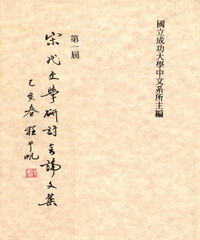 國立成功大學中文系所主編
第一屆
宋代文學研討會論文集
乙亥春 程千帆